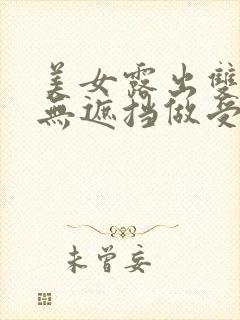 美女露出雙
無遮挡做受
未曾妄